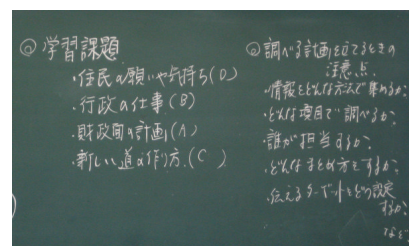 ◎学習課題
・住民の願いや気持ち(D)
・行政の仕事(B)
・財政面の計画(A)
・新しい道の作り方.(C)
◎調べる計画を立てるときの
注意点.
・情報をどんな方法で集めるか?
・どんな項目で調べるか?
・誰が担当するか?
・どんなまとめ方をするか?
・伝えるターゲットをどう設定
するか?
など